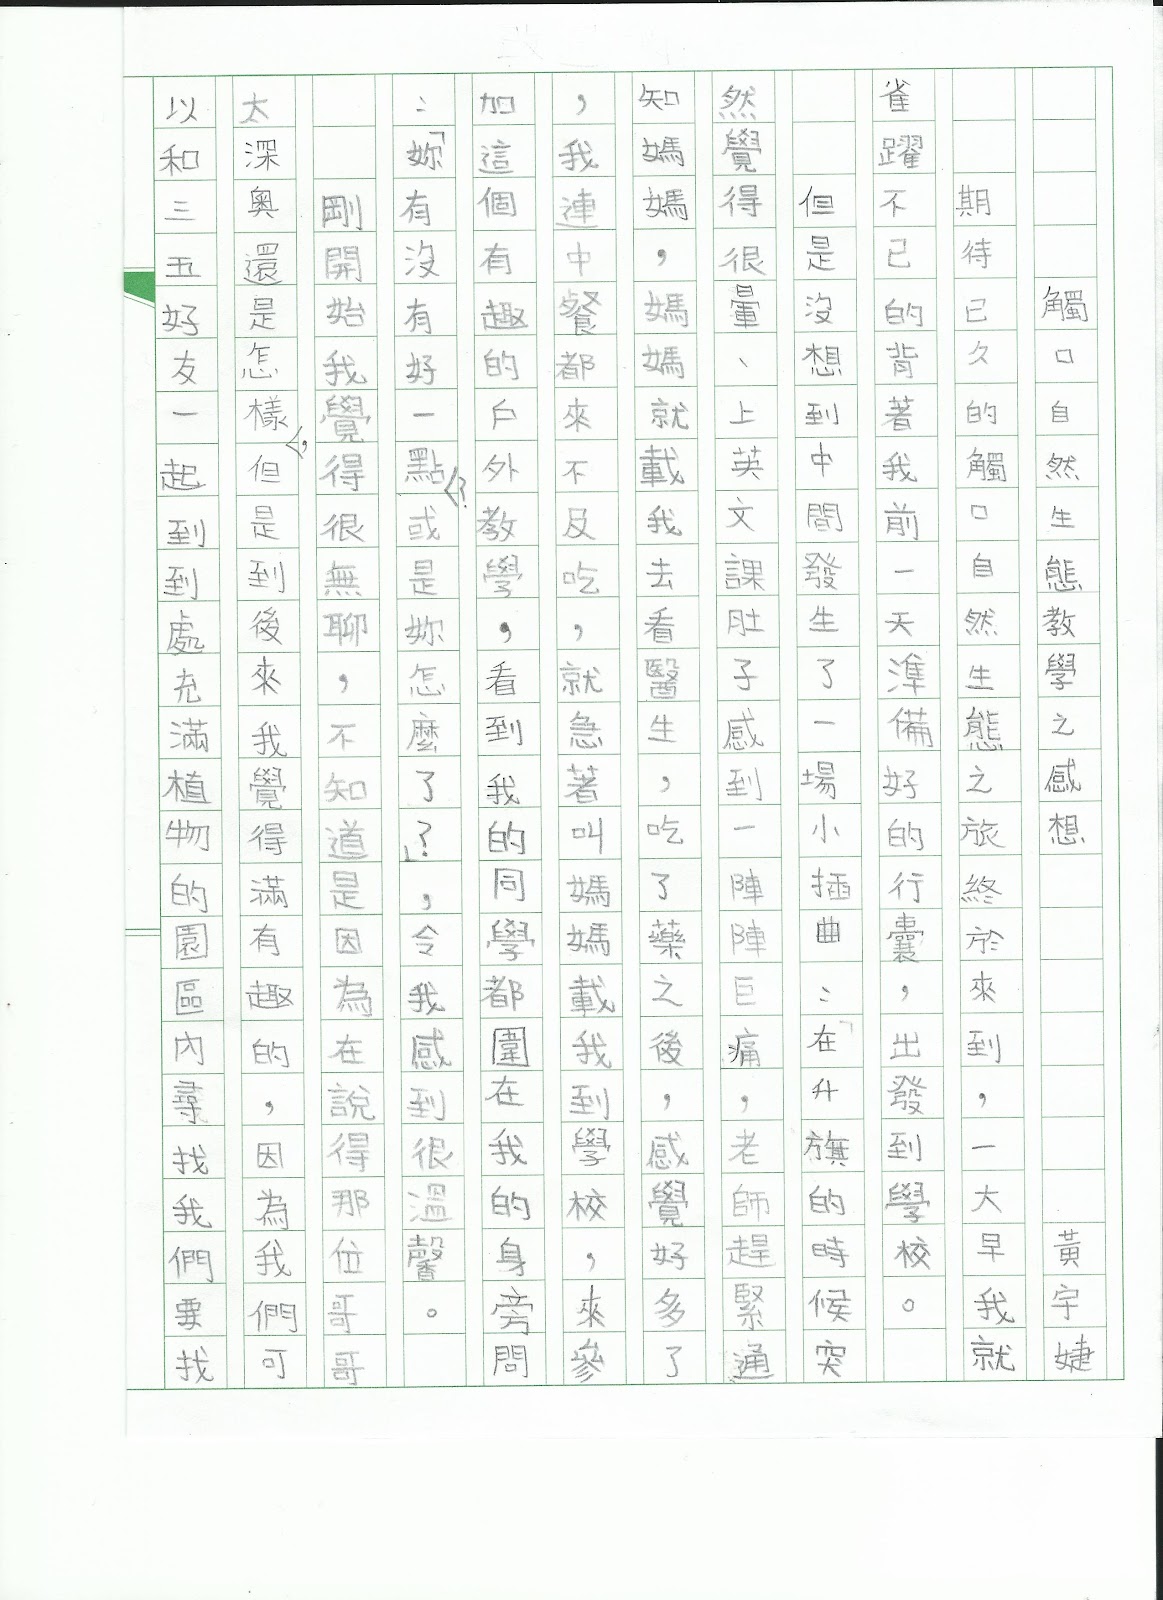 觸口自然生態教學之感想 黃宇婕
期待已久的觸口自然生態之旅終於來到,一大早我就
雀躍不已的背著我前一天準備好的行囊,出發到學校。
但是沒想到中間發生了一場小插曲:「在升旗的時候突
然覺得很暈、上英文課肚子感到一陣陣巨痛,老師趕緊通
知媽媽,媽媽就載我去看醫生,吃了藥之後,感覺好多了
,我連中餐都來不及吃,就急著叫媽媽載我到學校,來參
加這個有趣的戶外教學,看到我的同學都圍在我的身旁問
:「妳有沒有好一點?或是妳怎麼了?」,令我感到很溫馨。
剛開始我覺得很無聊,不知道是因為在說得那位哥哥
太深奧還是怎樣,但是到後來我覺得滿有趣的,因為我們可
以和三五好友一起到到處充滿植物的園區內尋找我們要找